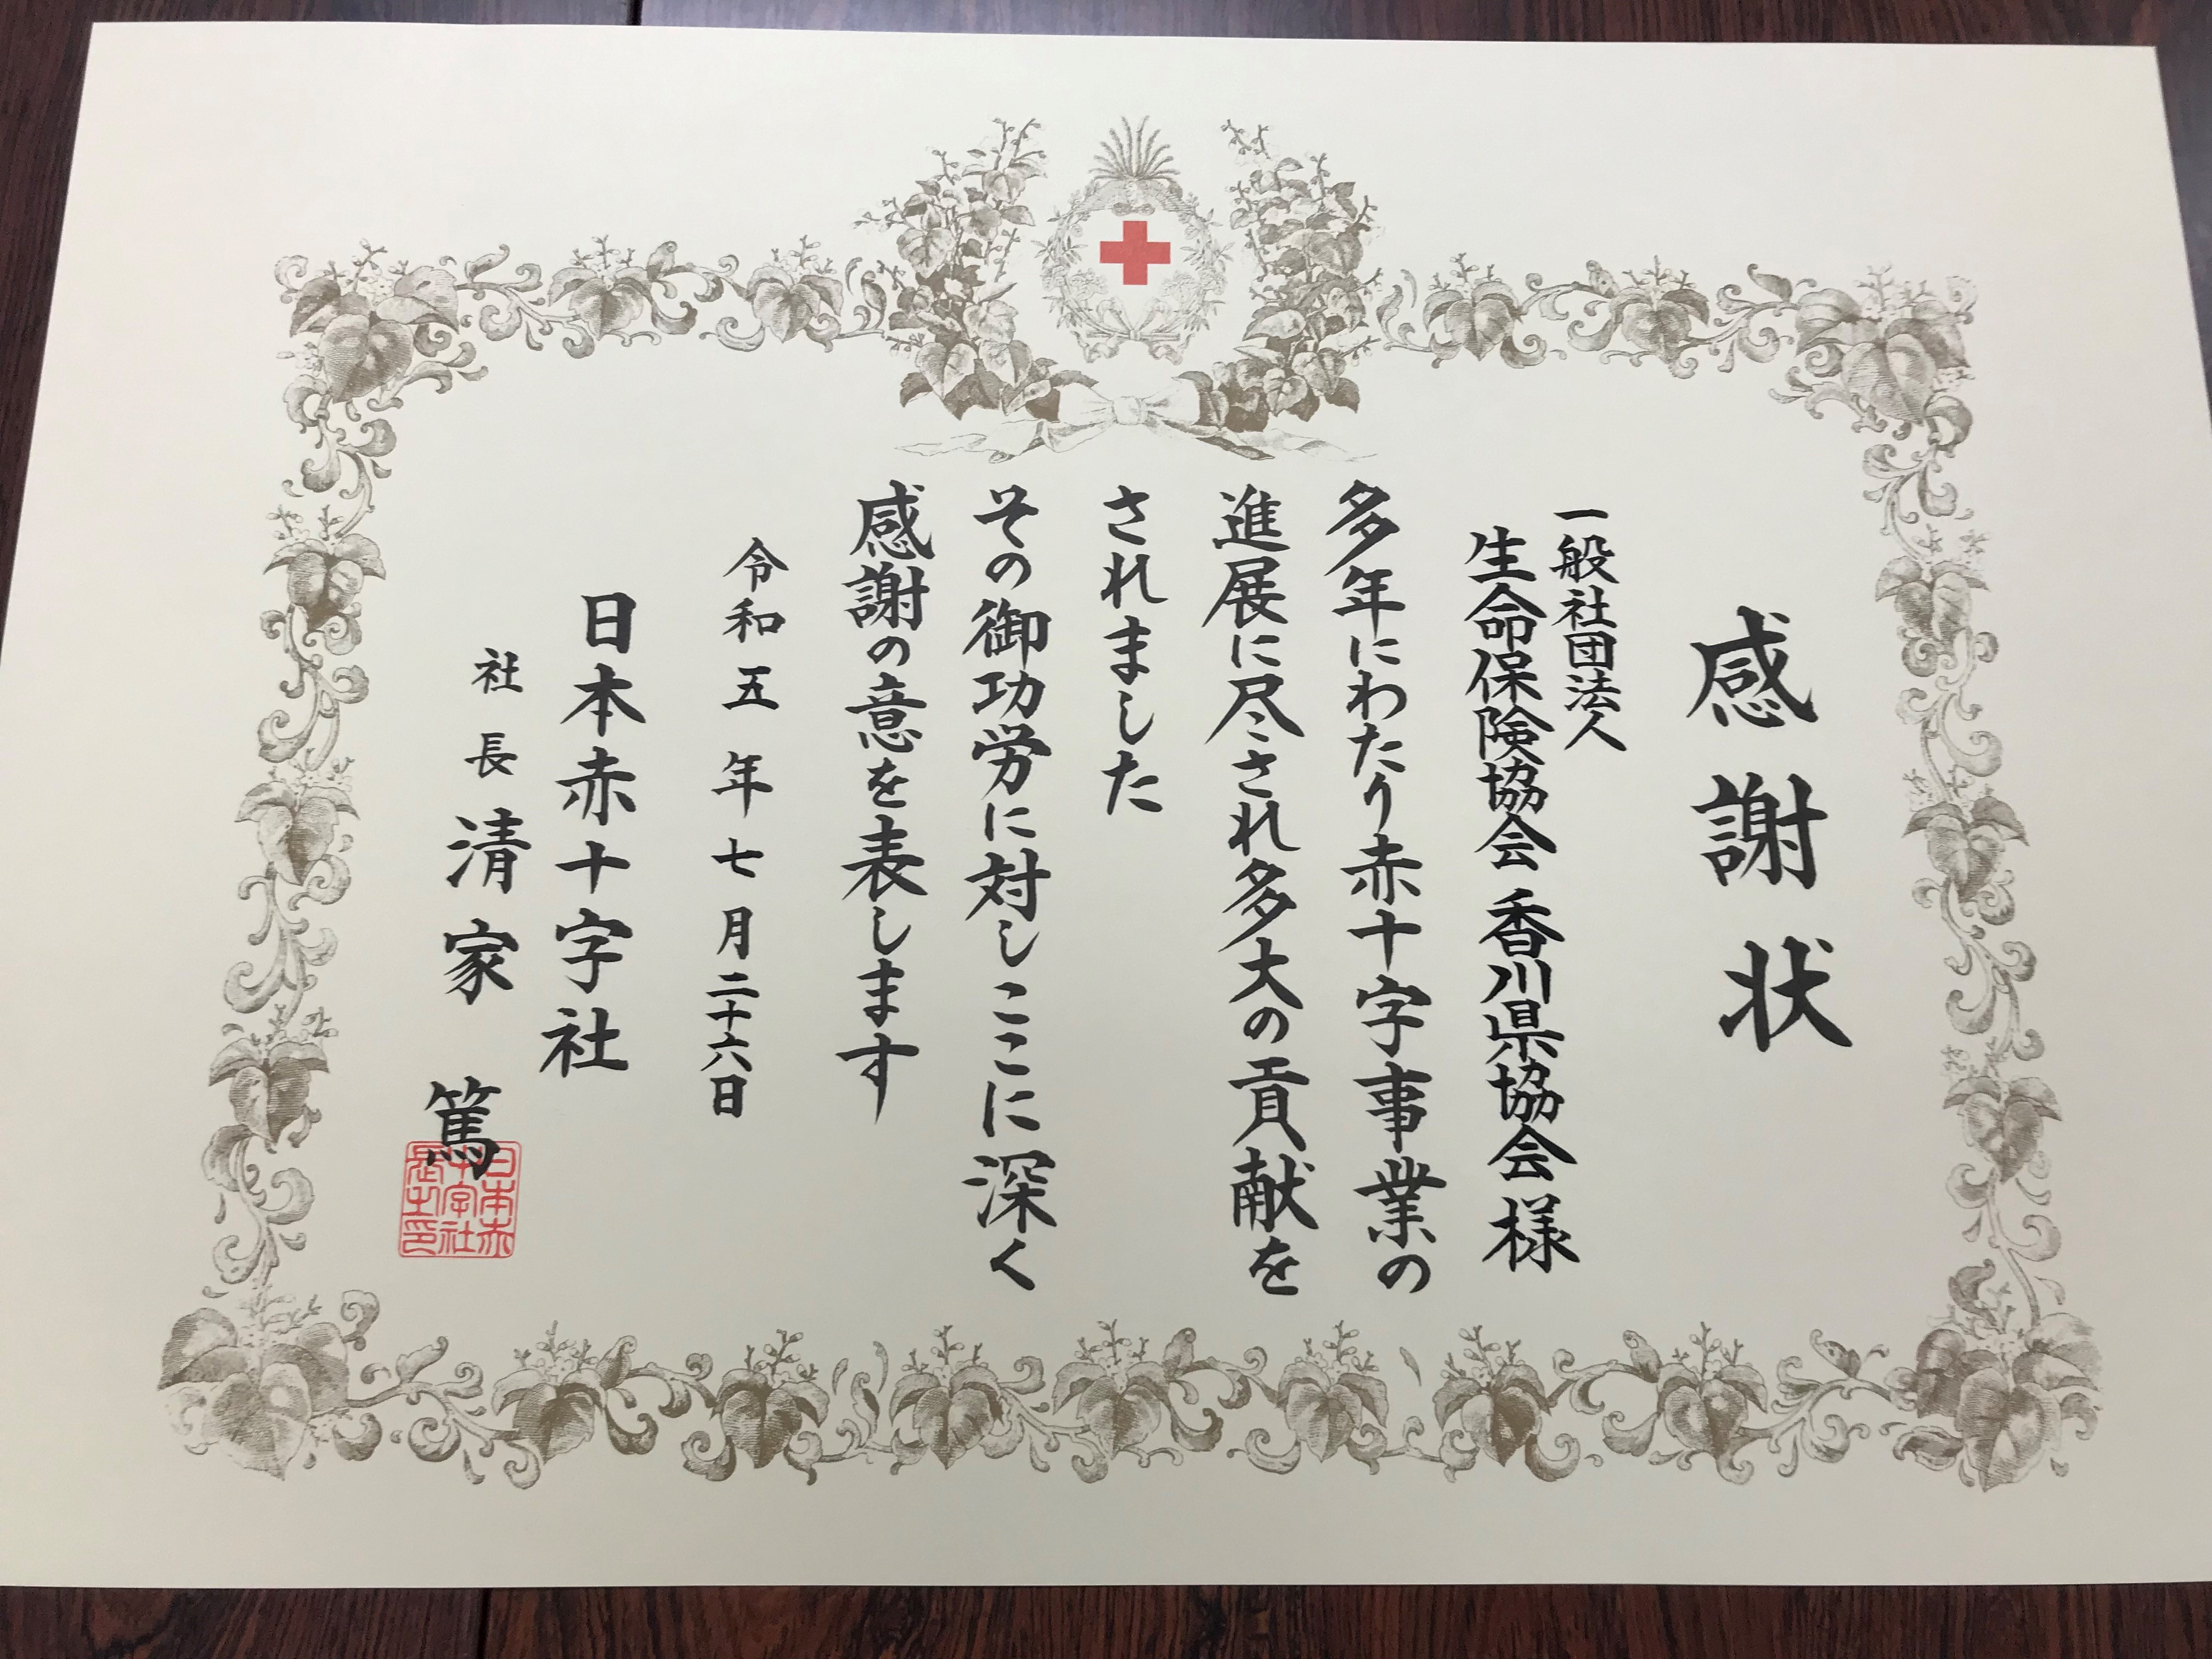 感謝状
一般社団法人
生命保険協会 香川県協会 様
多年にわたり赤十字事業の
進展に尽くされ多大の貢献を
されました
その御功労に対しここに深く
感謝の意を表します
令和五年七月二十六日
日本赤十字社
社長 清家 篤
日本赤
十字社
長之印